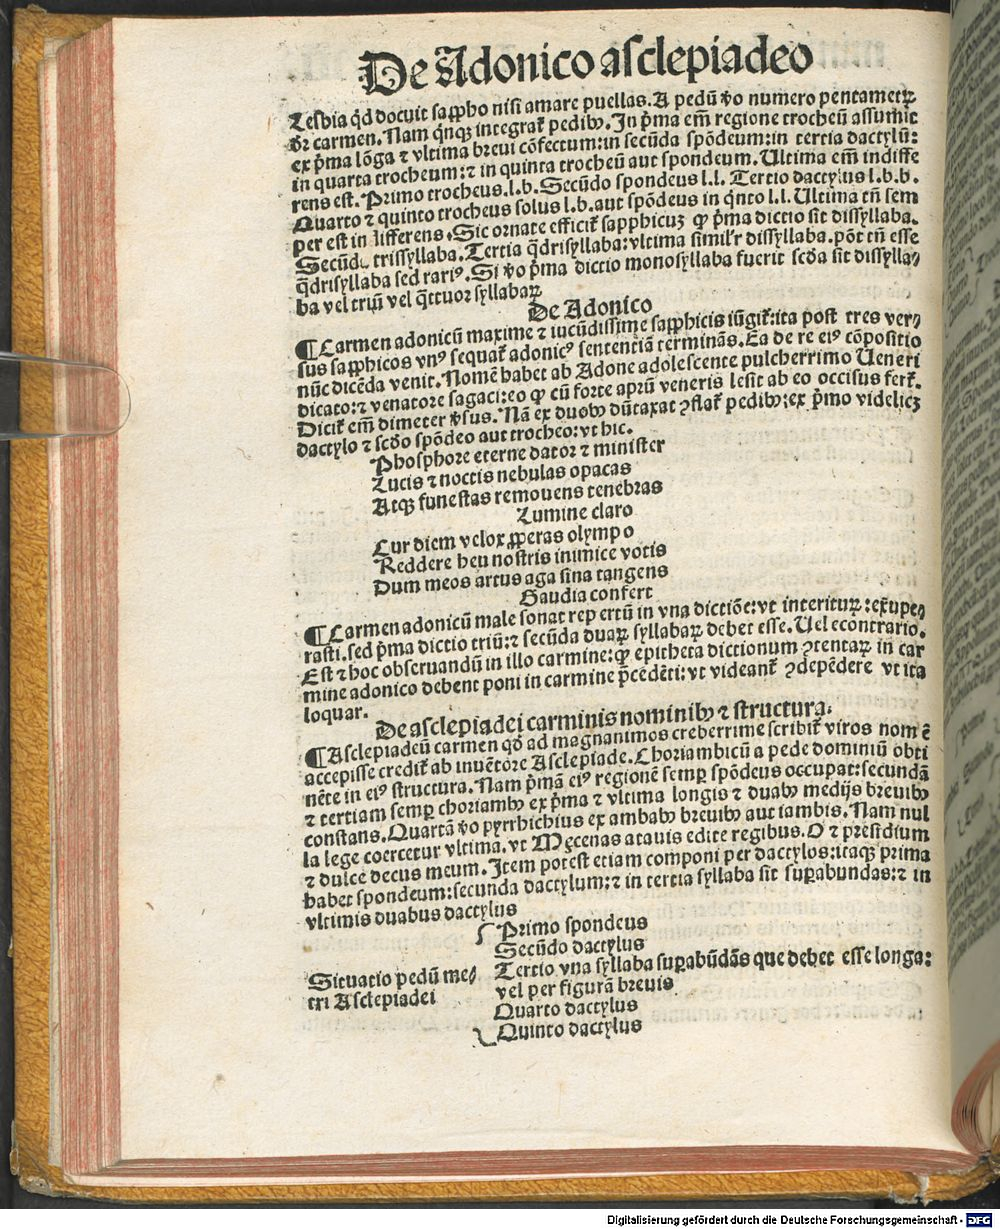 De Adonico asclepiadeo
Lesbia qd docuit sappho nisi amare puellas. A pedū ꝟo numero pentametꝝ
dr̄ carmen. Nam qnqꝫ integrat̉ pedibꝰ. In p̄ma em̄ regione trocheū assumit
ex p̄ma lōga ⁊ vltima breui cōfectum: in secūda spōdeum: in tertia dactylū:
in quarta trocheum: ⁊ in quinta trocheū aut spondeum. Ultima em̄ indiffe
rens est. Primo trocheus. l.b. Secūdo spondeus l.l. Tertio dactylus l.b.b.
Quarto ⁊ quinto trocheus solus l.b. aut spōdeus in qnto l.l. Ultima tn̄ sem
per est in differens. Sic ornate efficit̉ sapphicuꝫ ꝙ p̄ma dictio sit dissyllaba.
Secūda trissyllaba. Tertia q̄drisyllaba: vltima simil'r dissyllaba. pōt tn̄ esse
q̄drisyllaba sed rariꝰ. Si ꝟo p̄ma dictio monosyllaba fuerit scd̄a sit dissylla/
ba vel triū vel q̄ttuor syllabaꝝ
De Adonico
¶ Carmen adonicū maxime ⁊ iucūdissime sapphicis iūgit̉: ita post tres ver/
sus sapphicos vnꝰ sequat̉ adonicꝰ sententiā terminās. Ea de re eiꝰ cōpositio
nūc dicēda venit. Nomē habet ab Adone adolescente pulcherrimo Ueneri
dicato: ⁊ venatore sagaci: eo ꝙ cū forte aprū veneris lesit ab eo occisus fert̉.
Dicit̉ em̄ dimeter ꝟsus. Nā ex duobꝰ dūtaxat ꝯflat̉ pedibꝰ: ex p̄mo videlicꝫ
dactylo ⁊ scd̄o spōdeo aut trocheo: vt hic.
Phosphore eterne dator ⁊ minister
Lucis ⁊ noctis nebulas opacas
Atqꝫ funestas remouens tenebras
Lumine claro
Cur diem velox ꝓperas olympo
Reddere heu nostris inimice votis
Dum meos artus aga sina tangens
Gaudia confert
¶ Carmen adonicū male sonat rep ertū in vna dictiōe: vt interituꝝ: exupe/
rasti. sed p̄ma dictio triū: ⁊ secūda duaꝝ syllabaꝝ debet esse. Uel econtrario.
Est ⁊ hoc obseruandū in illo carmine: ꝙ epitheta dictionum ꝯtentaꝝ in car
mine adonico debent poni in carmine p̄cedēti: vt videant̉ ꝯdepēdere vt ita
loquar.
De asclepiadei carminis nominibꝰ ⁊ structura.
¶ Asclepiadeū carmen qd̄ ad magnanimos creberrime scribit̉ viros nom ē
accepisse credit̉ ab inuētore Asclepiade. Choriambicū a pede dominiū obti
nēte in eiꝰ structura. Nam p̄mā eiꝰ regionē semꝑ spōdeus occupat: secundā
⁊ tertiam semꝑ choriambꝰ ex p̄ma ⁊ vltima longis ⁊ duabꝰ medijs breuibꝰ
constans. Quartā ꝟo pyrrhichius ex ambabꝰ breuibꝰ aut iambis. Nam nul
la lege coercetur vltima. vt Męcenas atauis edite regibus. O ⁊ presidium
⁊ dulce decus meum. Item potest etiam componi per dactylos: itaqꝫ prima
habet spondeum: secunda dactylum: ⁊ in tertia syllaba sit suꝑabundas: ⁊ in
vltimis duabus dactylus
Situatio pedū me/
tri Asclepiadei
Primo spondeus
Secūdo dactylus
Tertio vna syllaba suꝑabūdās que debet esse longa:
vel per figurā breuis
Quarto dactylus
Quinto dactylus
Digitalisierung gefördert durch die Deutsche Forschungsgemeinschaft - DFG